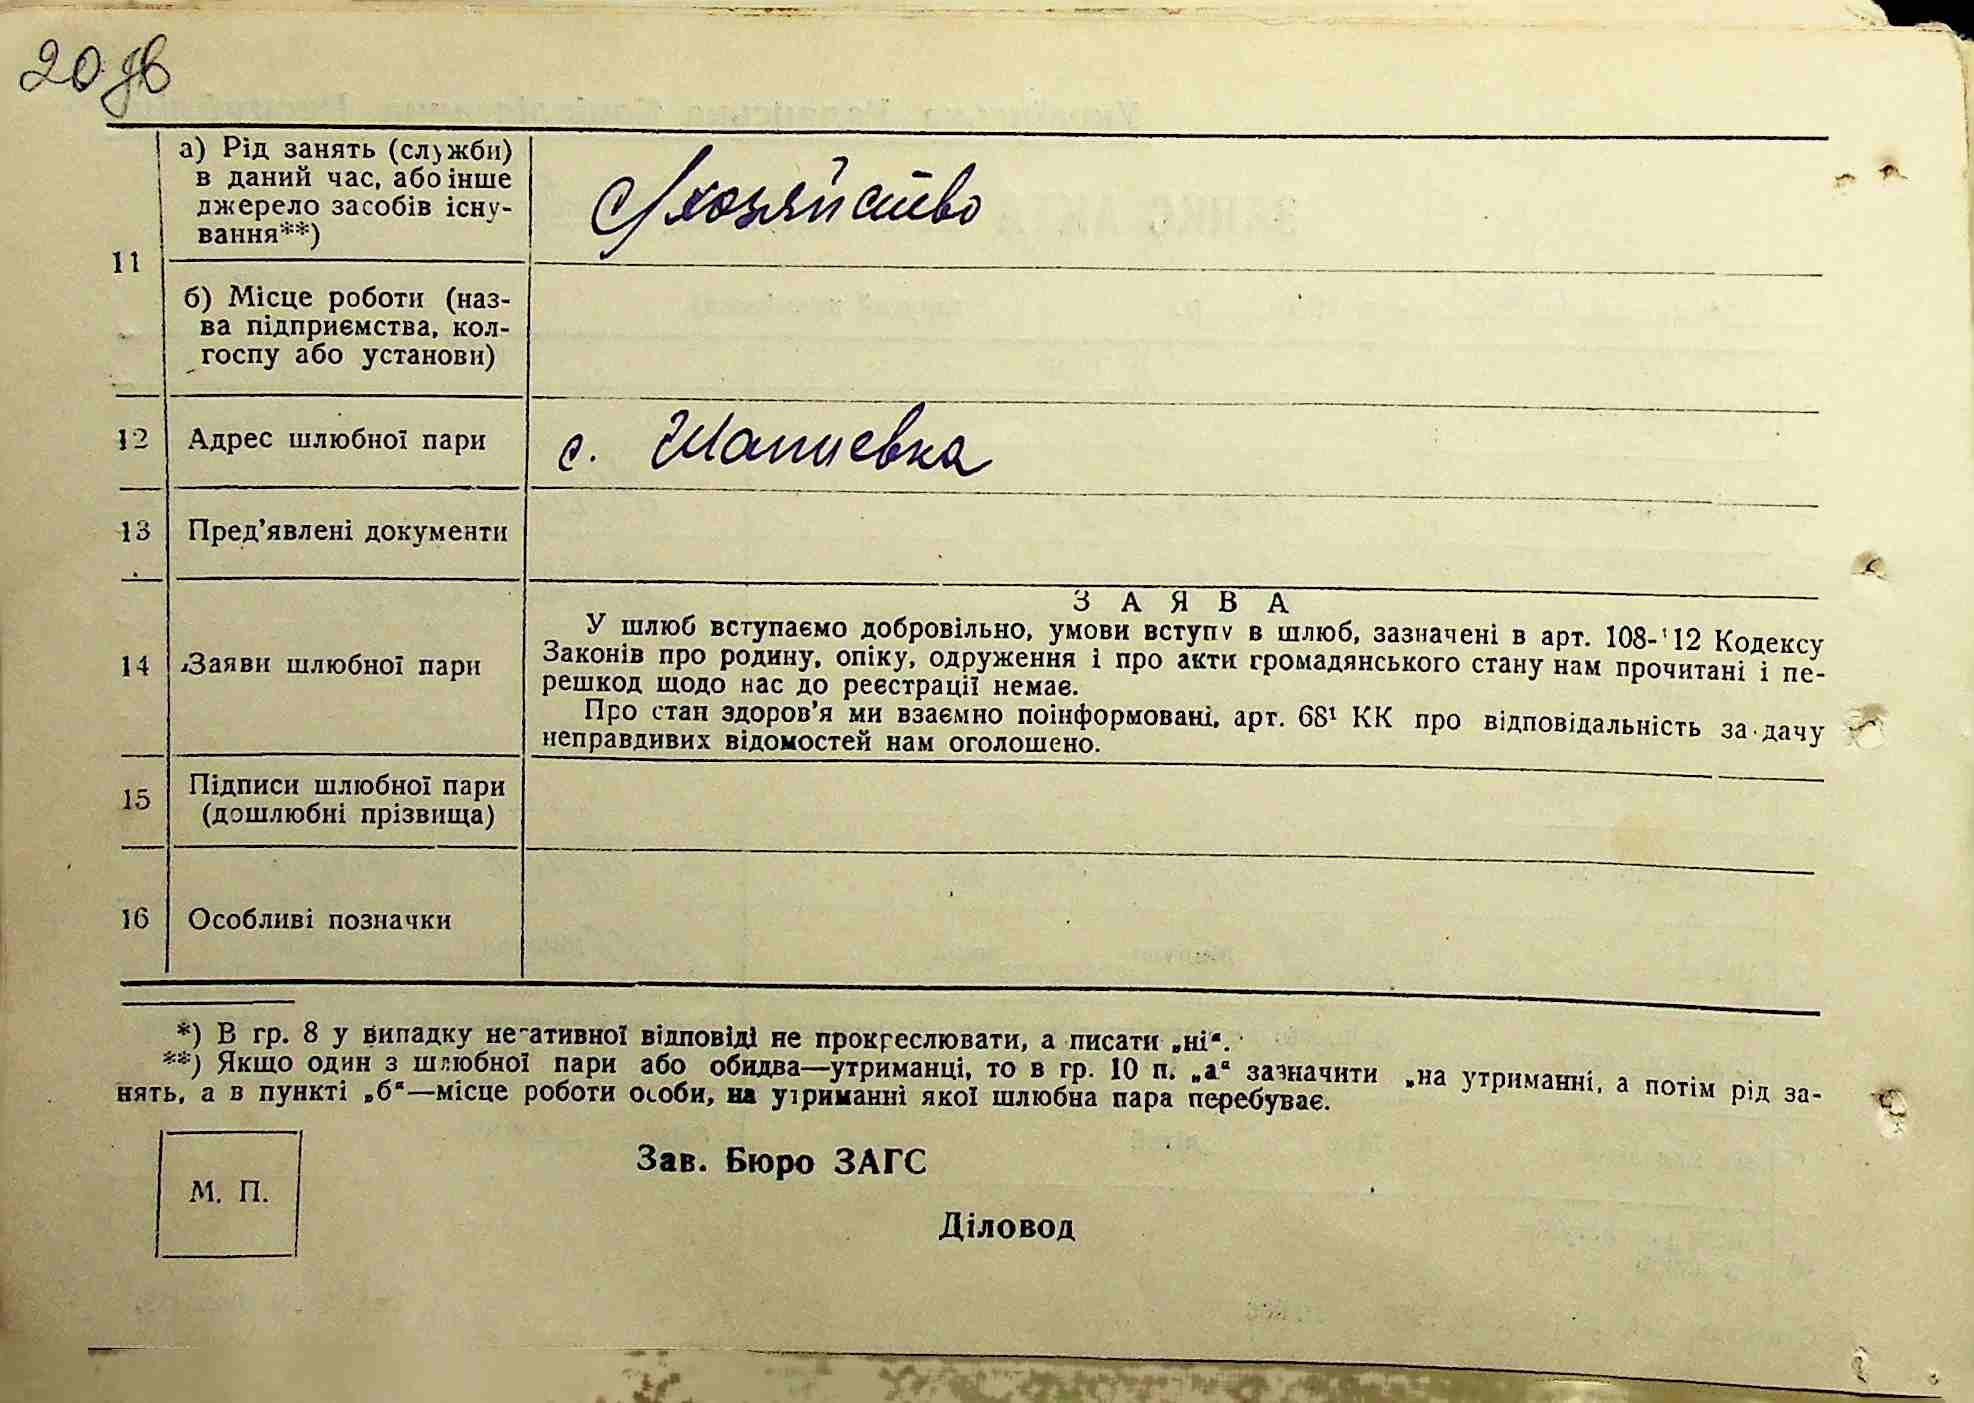 20 зв
11
а) Рід занять (служби)
в даний час, або інше
джерело засобів існу-
вання**)
С/хозяйство
б) Місце роботи (наз-
ва підприємства, кол-
госпу або установи)
12
Адрес шлюбної пари
с. Шапиевка
13
Пред’явлені документи
14
Заяви шлюбної пари
ЗАЯВА
У шлюб вступаємо добровільно, умови вступу в шлюб, зазначені в арт. 108-112 Кодексу
Законів про родину, опіку, одруження і про акти громадянського стану нам прочитані і пе-
решкод щодо нас до реєстрації немає.
Про стан здоров’я ми взаємно поінформовані, арт. 68¹ КК про відповідальність за дачу
неправдивих відомостей нам оголошено.
15
Підписи шлюбної пари
(дошлюбні прізвища)
16
Особливі позначки
*) В гр. 8 у випадку негативної відповіді не прокреслювати, а писати „ні“.
**) Якщо один з шлюбної пари або обидва—утриманці, то в гр. 10 п. „а“ зазначити „на утриманні, а потім рід за-
нять, а в пункті „б“—місце роботи особи, на утриманні якої шлюбна пара перебуває.
М. П.
Зав. Бюро ЗАГС
Діловод